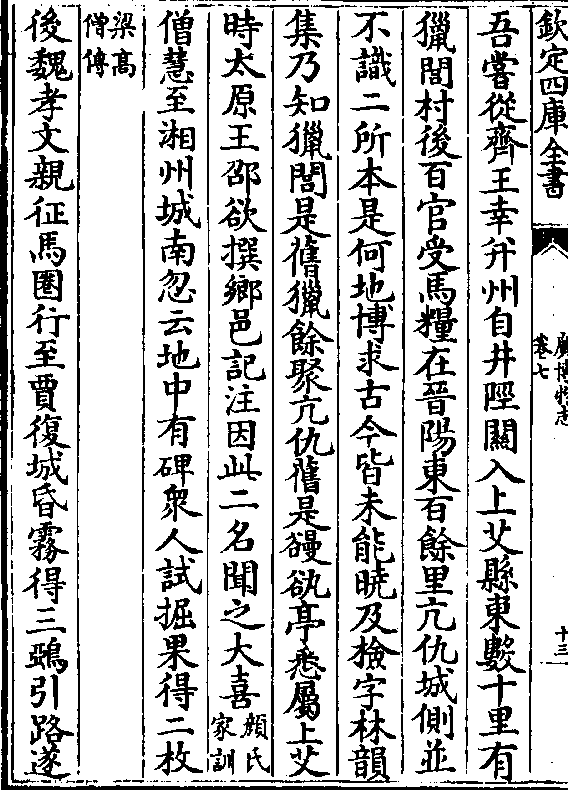 欽定四庫全書
廣博物志
卷七
十三
吾嘗從齊王幸并州自井陘關入上艾縣東數十里有
獵閭村後百官受馬糧在晉陽東百餘里亢仇城側並
不識二所本是何地博求古今皆未能曉及檢字林韻
集乃知獵閭是舊獵餘聚亢仇舊是䜱䜪亭悉屬上艾
時太原王邵欲撰鄉邑記注因此二名聞之大喜顏氏家訓
僧慧至湘州城南忽云地中有碑衆人試掘果得二枚
梁高僧傳
後魏孝文親征馬圈行至賈復城昏霧得三鵶引路遂